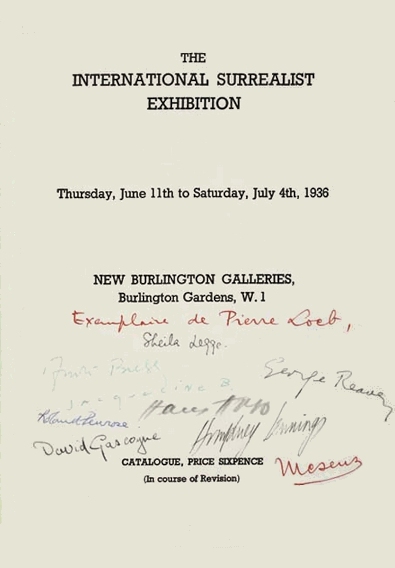 THE
INTERNATIONAL SURREALIST
EXHIBITION
Thursday, June 11th to Saturday, July 4th, 1936
NEW BURLINGTON GALLERIES,
Burlington Gardens, W. 1
Exemplaire de Pierre Loeb,
Sheila Legge.
George Reavey
Jacqueline B
Roland Penrose
Hans Arp
David Gascoyne
Humphrey Jennings
CATALOGUE, PRICE SIXPENCE
Mesens
(In course of Revision)